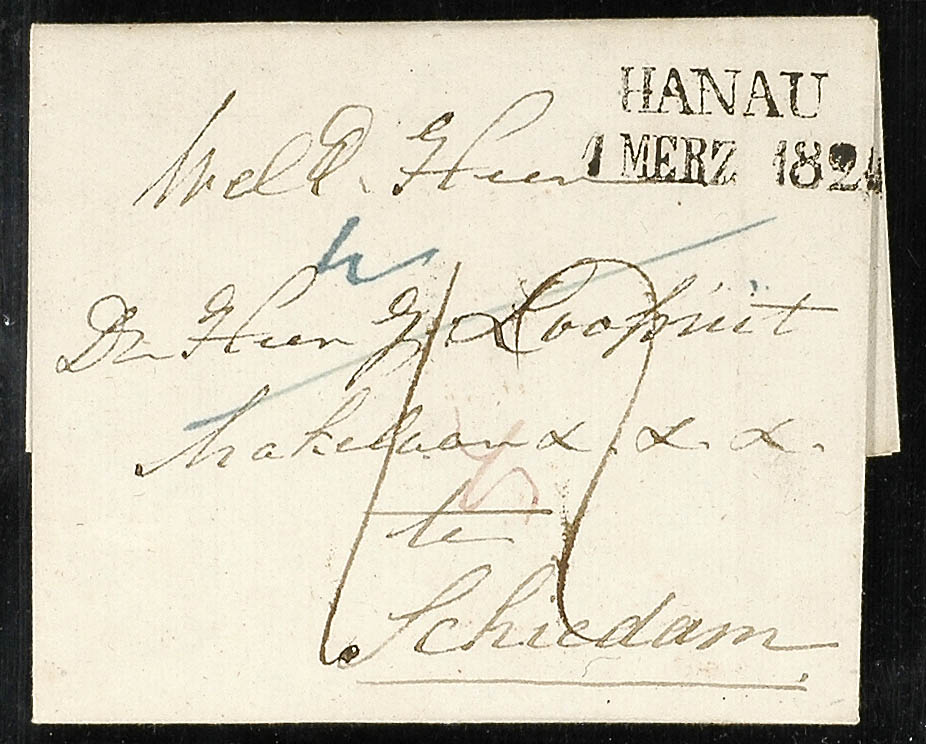 HANAU
1 MERZ 1824
WelEd. Heer
De Heer G. Loopuit
Makelaar &. &. &.
te
Schiedam